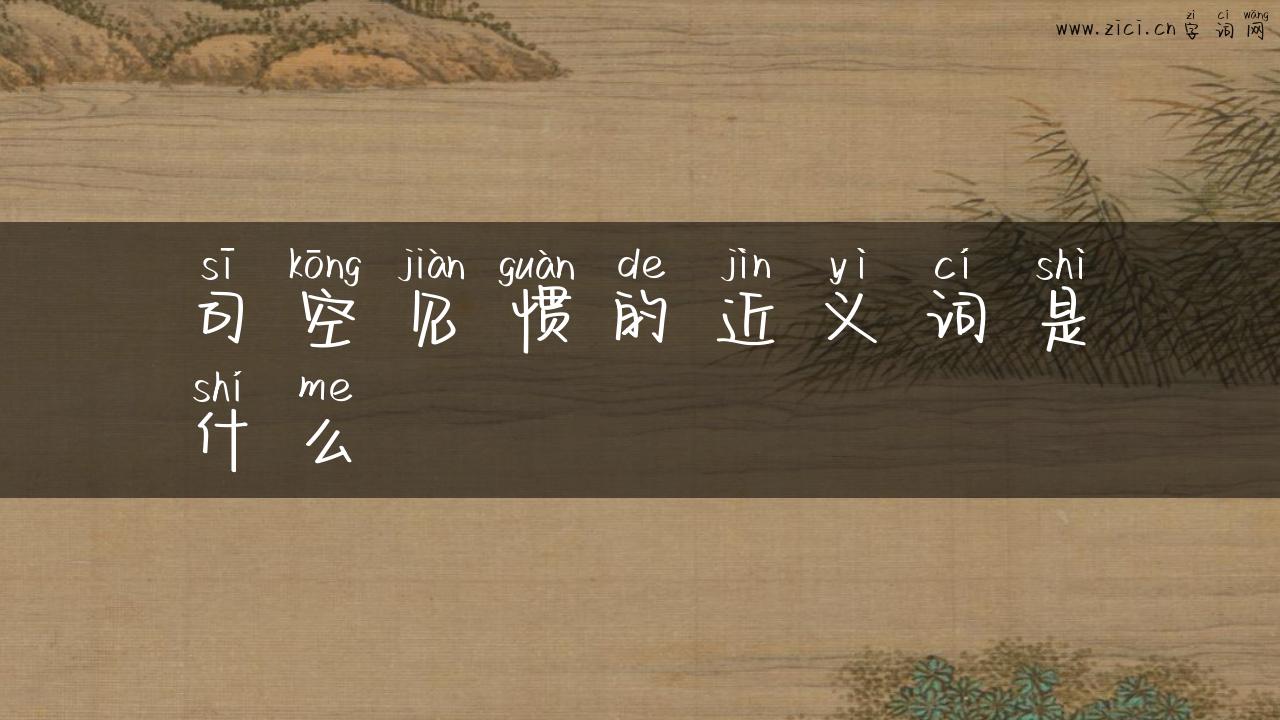 zì cí wǎng
www.zici.cn 字词网
sī kōng jiàn guàn de jìn yì cí shì
司空见惯的近义词是
shí me
什么